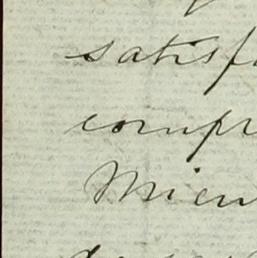 satisf
compr
Mien